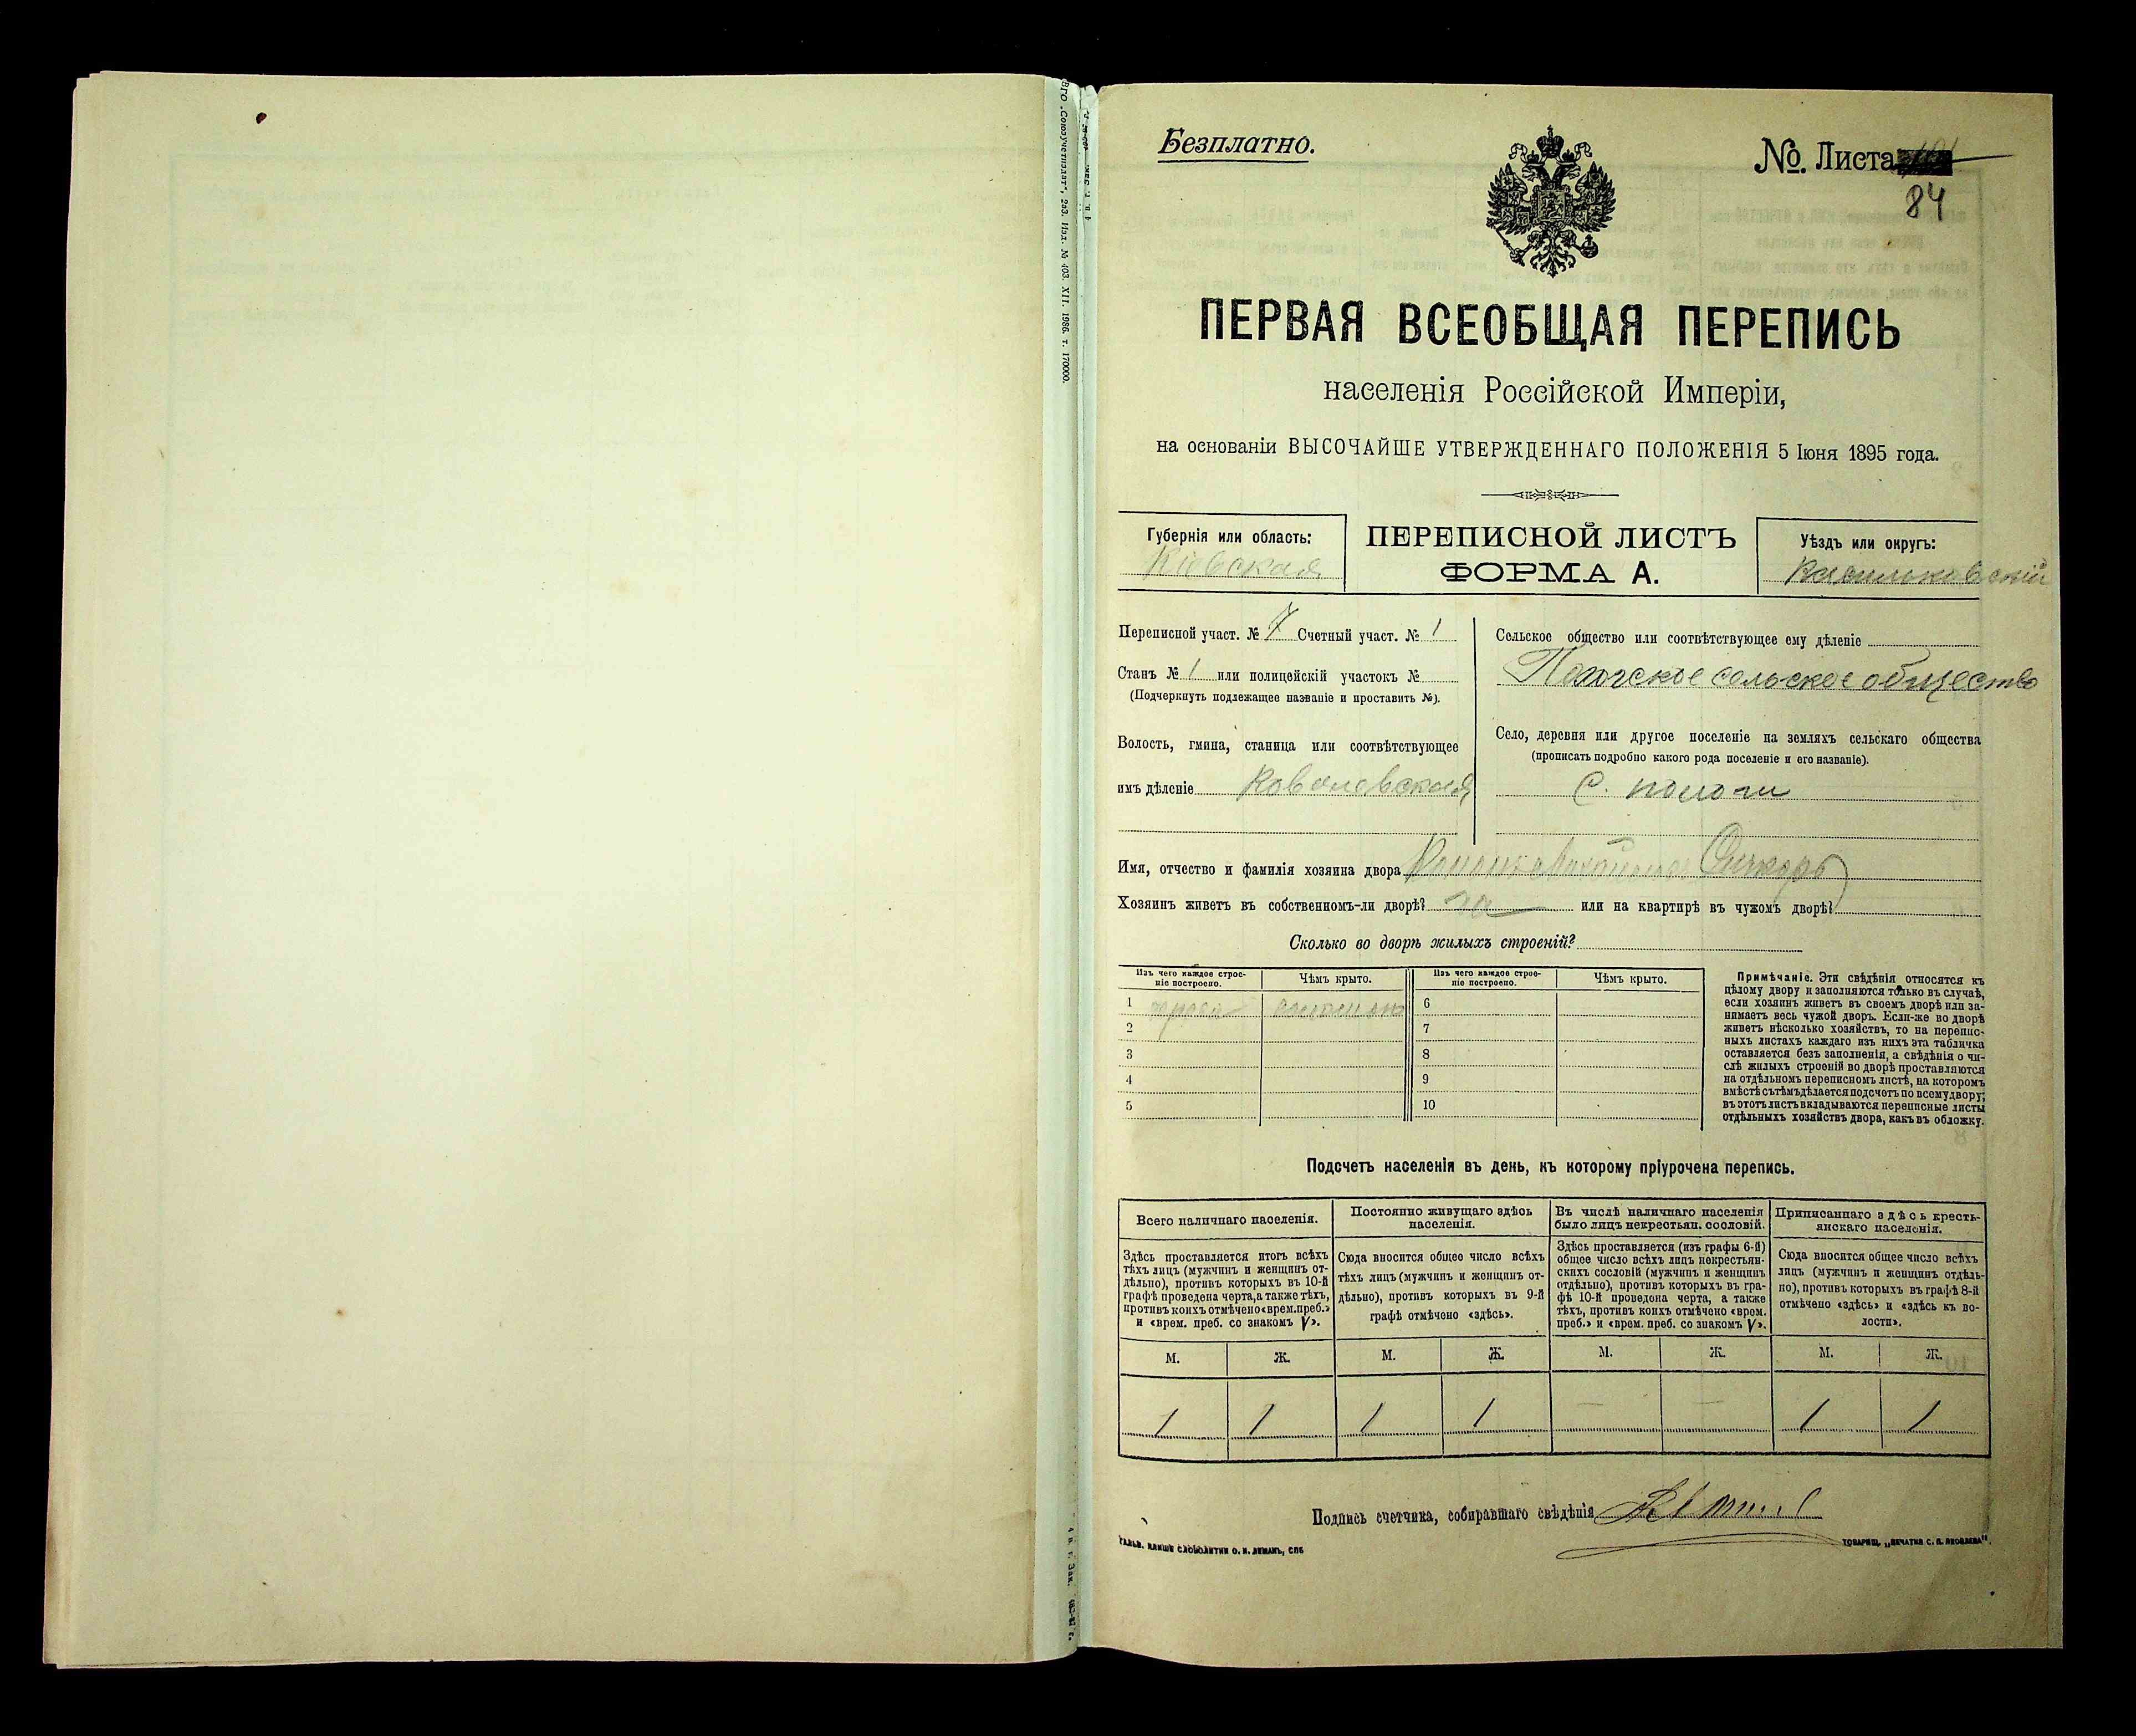 Безплатно.
№. Листа
84
ПЕРВАЯ ВСЕОБЩАЯ ПЕРЕПИСЬ
населенія Россійской Имперіи,
на основаніи ВЫСОЧАЙШЕ УТВЕРЖДЕННАГО ПОЛОЖЕНІЯ 5 Іюня 1895 года.
Губернія или область:
Кіевская
ПЕРЕПИСНОЙ ЛИСТЪ
ФОРМА А.
Уѣздъ или округъ:
Васильковскій
Переписной участ. № 7 Счетный участ. № 1
Станъ № 1 или полицейскій участокъ №
(Подчеркнуть подлежащее названіе и проставить №).
Волость, гмина, станица или соотвѣтствующее
имъ дѣленіе Ковалевская
Сельское общество или соотвѣтствующее ему дѣленіе
сельское общество
Село, деревня или другое поселеніе на земляхъ сельскаго общества
(прописать подробно какого рода поселеніе и его названіе).
С. пологи
Имя, отчество и фамилія хозяина двора
Хозяинъ живетъ въ собственномъ-ли дворѣ? да или на квартирѣ въ чужомъ дворѣ?
Сколько во дворѣ жилыхъ строеній?
Изъ чего каждое строе-
ніе построено.
Чѣмъ крыто.
Изъ чего каждое строе-
ніе построено.
Чѣмъ крыто.
1
2
3
4
5
6
7
8
9
10
Примѣчаніе. Эти свѣдѣнія относятся къ
цѣлому двору и заполняются только въ случаѣ,
если хозяинъ живетъ въ своемъ дворѣ или за-
нимаетъ весь чужой дворъ. Если-же во дворѣ
живетъ нѣсколько хозяйствъ, то на перепис-
ныхъ листахъ каждаго изъ нихъ эта табличка
оставляется безъ заполненія, а свѣдѣнія о чи-
слѣ жилыхъ строеній во дворѣ проставляются
на отдѣльномъ переписномъ листѣ, на которомъ
вмѣстѣ съ тѣмъ дѣлается подсчетъ по всему двору;
въ этотъ листъ вкладываются переписные листы
отдѣльныхъ хозяйствъ двора, какъ въ обложку.
Подсчетъ населенія въ день, къ которому пріурочена перепись.
Всего наличнаго населенія.
Здѣсь проставляется итогъ всѣхъ
тѣхъ лицъ (мужчинъ и женщинъ от-
дѣльно), противъ которыхъ въ 10-й
графѣ проведена черта, а также тѣхъ,
противъ коихъ отмѣчено «врем. преб.»
и «врем. преб. со знакомъ V».
Постоянно живущаго здѣсь
населенія.
Сюда вносится общее число всѣхъ
тѣхъ лицъ (мужчинъ и женщинъ от-
дѣльно), противъ которыхъ въ 9-й
графѣ отмѣчено «здѣсь».
Въ числѣ наличнаго населенія
было лицъ некрестьян. сословій.
Здѣсь проставляется (изъ графы 6-й)
общее число всѣхъ лицъ некрестьян-
скихъ сословій (мужчинъ и женщинъ
отдѣльно), противъ которыхъ въ гра-
фѣ 10-й проведена черта, а также
тѣхъ, противъ коихъ отмѣчено «врем.
преб.» и «врем. преб. со знакомъ V».
Приписаннаго здѣсь кресть-
янскаго населенія.
Сюда вносится общее число всѣхъ
лицъ (мужчинъ и женщинъ отдѣль-
но), противъ которыхъ въ графѣ 8-й
отмѣчено «здѣсь» и «здѣсь къ во-
лости».
М. Ж. М. Ж. М. Ж. М. Ж.
1 1 1 1 — — 1 1
Подпись счетчика, собиравшаго свѣдѣнія
ТОВАРИЩ. „ПЕЧАТНЯ С. П. ЯКОВЛЕВА".